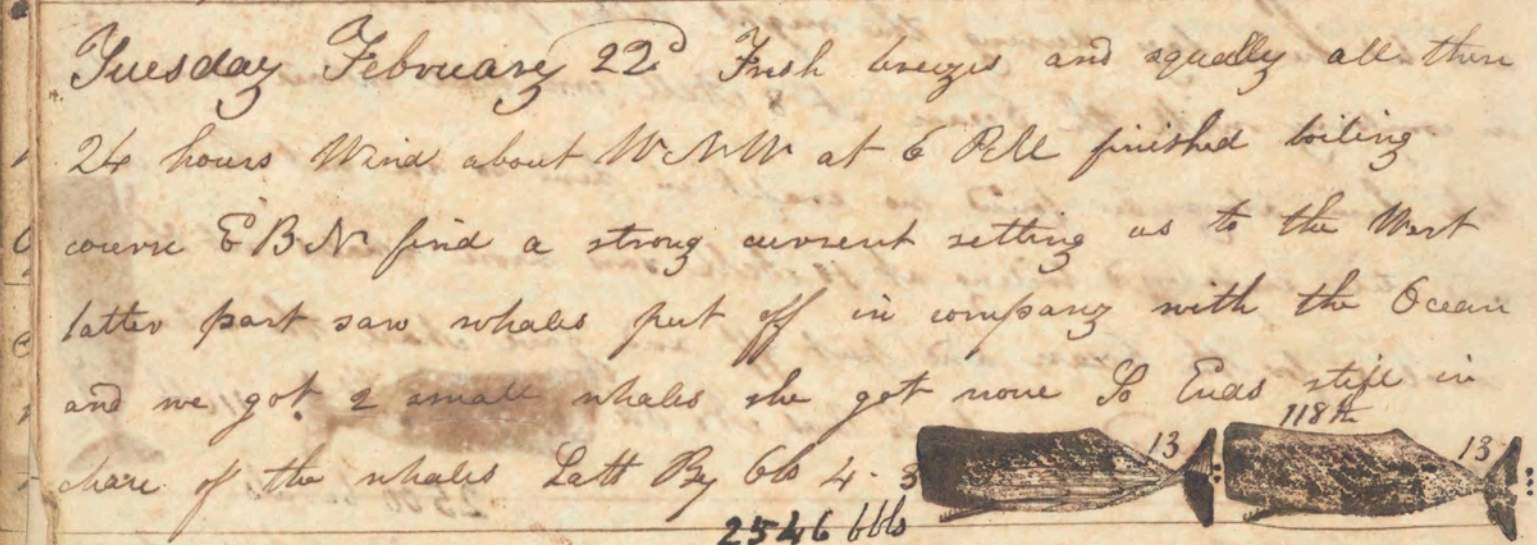 Tuesday February 22d Fresh breezes and squally all these
24 hours Wind about WNW at 6 PM finished boiling
course EBN find a strong current setting us to the West
latter part saw whales put off in company with the Ocean
and we got 2 small whales she got none So Ends still in
chase of the whales Latt By Obs 4. 3
118th
13 13
2546 bbls